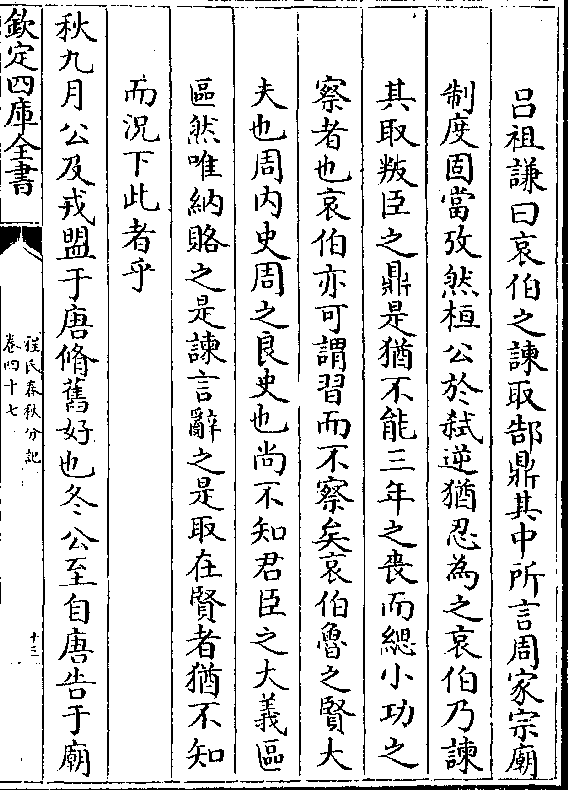 吕祖謙曰哀伯之諫取郜鼎其中所言周家宗廟
制度固當攷然桓公於弑逆猶忍為之哀伯乃諫
其取叛臣之鼎是猶不能三年之喪而緦小功之
察者也哀伯亦可謂習而不察矣哀伯魯之賢大
夫也周内史周之良史也尚不知君臣之大義區
區然唯納賂之是諫言辭之是取在賢者猶不知
而況下此者乎
秋九月公及戎盟于唐脩舊好也冬公至自唐告于廟
欽定四庫全書
程氏春秋分記
卷四十七
十三